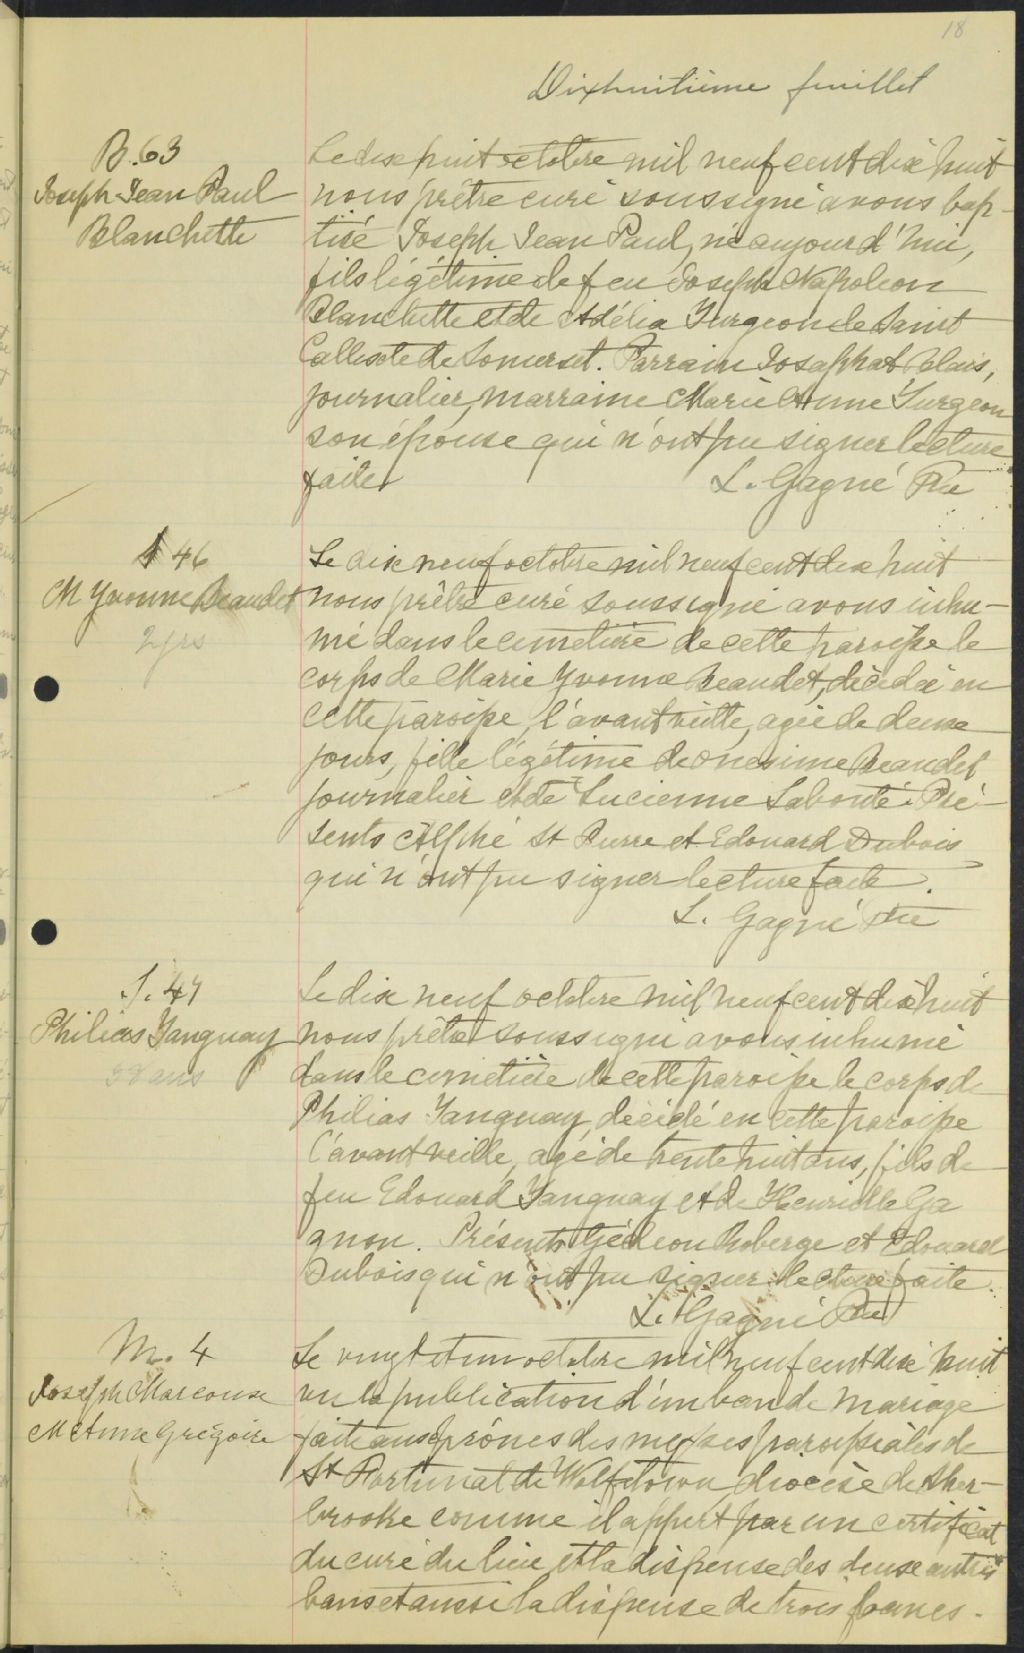 18
Dixhuitième feuillet
B. 63
Joseph Jean Paul
Blanchette
Le dix huit octobre mil neuf cent dix huit
nous prêtre curé soussigné avons bap-
tisé Joseph Jean Paul, né aujourd'hui,
fils légitime de feu Joseph Napoléon
Blanchette et de Adélia Turgeon de Saint
Callixte de Somerset. Parrain Josaphat Blais,
journalier, marraine Marie Anne Turgeon
son épouse qui n'ont pu signer lecture
faite
L. Gagné Ptre
S 46
M Yvonne Beaudet
2 jrs
Le dix neuf octobre mil neuf cent dix huit
nous prêtre curé soussigné avons inhu-
mé dans le cimetière de cette paroisse le
corps de Marie Yvonne Beaudet, décédée en
cette paroisse, l'avant veille, agée de deux
jours, fille légitime de Onesime Beaudet
journalier et de Lucienne Labonté. Pré-
sents Alphé St Pierre et Edouard Dubois
qui n'ont pu signer lecture faite.
L. Gagné Ptre
S. 47
Philias Tanguay
38 ans
Le dix neuf octobre mil neuf cent dix huit
nous prêtre soussigné avons inhumé
dans le cimetière de cette paroisse le corps de
Philias Tanguay décédé en cette paroisse
l'avant veille, agé de trente huit ans, fils de
feu Edouard Tanguay et de Henriette Ga
gnon. Présents Gédéon Roberge et Edouard
Dubois qui n'ont pu signer lecture faite.
L. Gagné Ptre
M. 4
Joseph Marcoux
M Anne Grégoire
Le vingt et un octobre mil neuf cent dix huit
vu la publication d'un ban de mariage
faite aux prônes des messes paroissiales de
St Fortunat de Wolfestown diocèse de Sher-
brooke comme il appert par un certificat
du curé du lieu et la dispense des deux autres
bans et aussi la dispense de trois bancs.